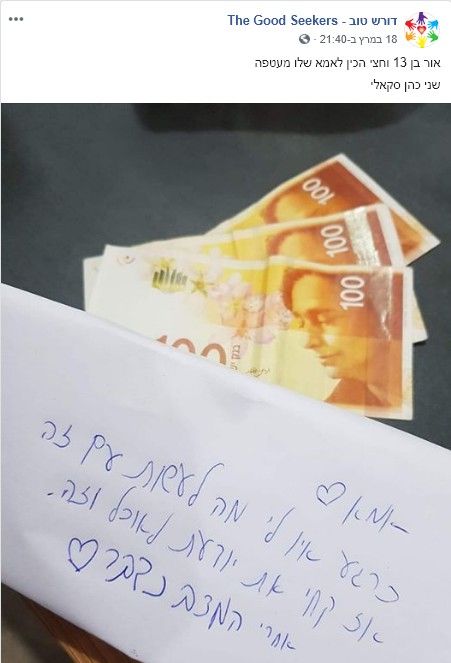 דורש טוב - The Good Seekers
18 במרץ ב-21:40
אור בן 13 וחצי הכין לאמא שלו מעטפה
שני כהן סקאלי
100
100
100
100
בנק
-אמא♡
כרגע אין לי מה לעשות עם זה
אז קחי את יודעת לאוכל וזה.
אחרי המצב נדבר♡